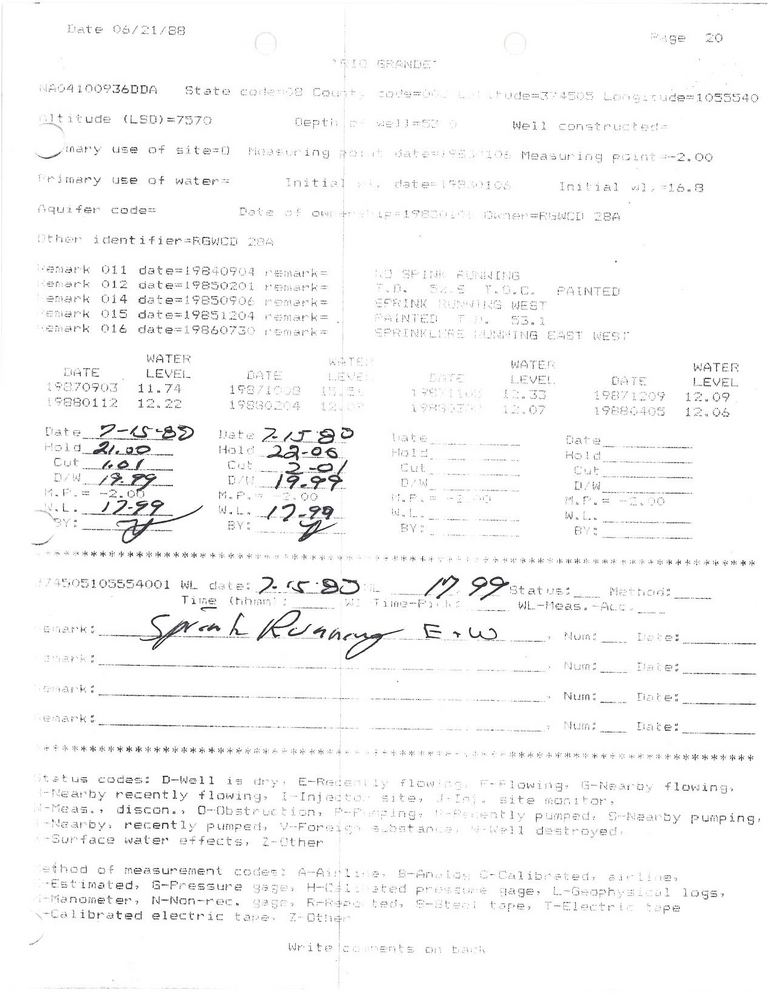 Date 06/21/88
Page 20
"RIO GRANDE"
NA04100936DDA State code=08 County code= Latitude=374505 Longitude=1055540
Altitude (LSD)=7570 Depth of well=52.0 Well constructed=
mary use of site=O Measuring point date=19830106 Measuring point=-2.00
Primary use of water= Initial wl. date=19830106 Initial wl.=16.8
Aquifer code= Date of ownership=19830106 Owner=RGWCD 28A
Other identifier=RGWCD 28A
emark 011 date=19840904 remark= NO SPINK RUNNING
emark 012 date=19850201 remark= T.D. 52.5 T.O.C. PAINTED
emark 014 date=19850906 remark= SPRINK RUNNING WEST
emark 015 date=19851204 remark= . PAINTED T.D. 53.1
emark 016 date=19860730 remark= SPRINKLERS RUNNING EAST WEST
WATER WATER WATER WATER
DATE LEVEL DATE LEVEL DATE LEVEL DATE LEVEL
19870903 11.74 19871008 12.33 19871209 12.09
19880112 12.22 19880204 12.07 19880405 12.06
Date 7-15-88 Date 7-15-88 Date Date
Hold 21.00 Hold 22-00 Hold Hold
Cut 1.01 Cut 2-01 Cut Cut
D/W 19.99 D/W 19.99 D/W D/W
M.P.= -2.00 M.P.= -2.00 M.P.= -2.00 M.P.= -2.00
W.L. 17-99 W.L. 17-99 W.L. W.L.
BY: BY: BY: BY:
************************************************************************
374505105554001 WL date: 7-15-88 WL 17 99 Status: Method:
Time (hhmm): WL Time-Pick: WL-Meas.-Acc.
emark: Sprink Running E+W, Num: Date:
emark: , Num: Date:
emark: , Num: Date:
emark: , Num: Date:
************************************************************************
Status codes: D-Well is dry, E-Recently flowing, F-Flowing, G-Nearby flowing,
-Nearby recently flowing, I-Injector site, J-Inj. site monitor,
N-Meas., discon., O-Obstruction, P-Pumping, R-Recently pumped, S-Nearby pumping,
-Nearby, recently pumped, V-Foreign substance, W-Well destroyed,
-Surface water effects, Z-Other
ethod of measurement codes: A-Airline, B-Analog C-Calibrated, airline,
-Estimated, G-Pressure gage, H-Calibrated pressure gage, L-Geophysical logs,
-Manometer, N-Non-rec. gage, R-Reported, S-Steel tape, T-Electric tape
-Calibrated electric tape, Z-Other
Write comments on back